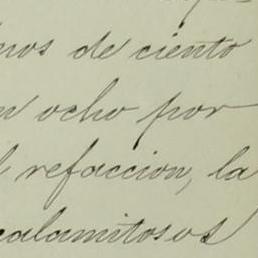 nos de ciento
n ocho por
l refaccion, la
calamitosos